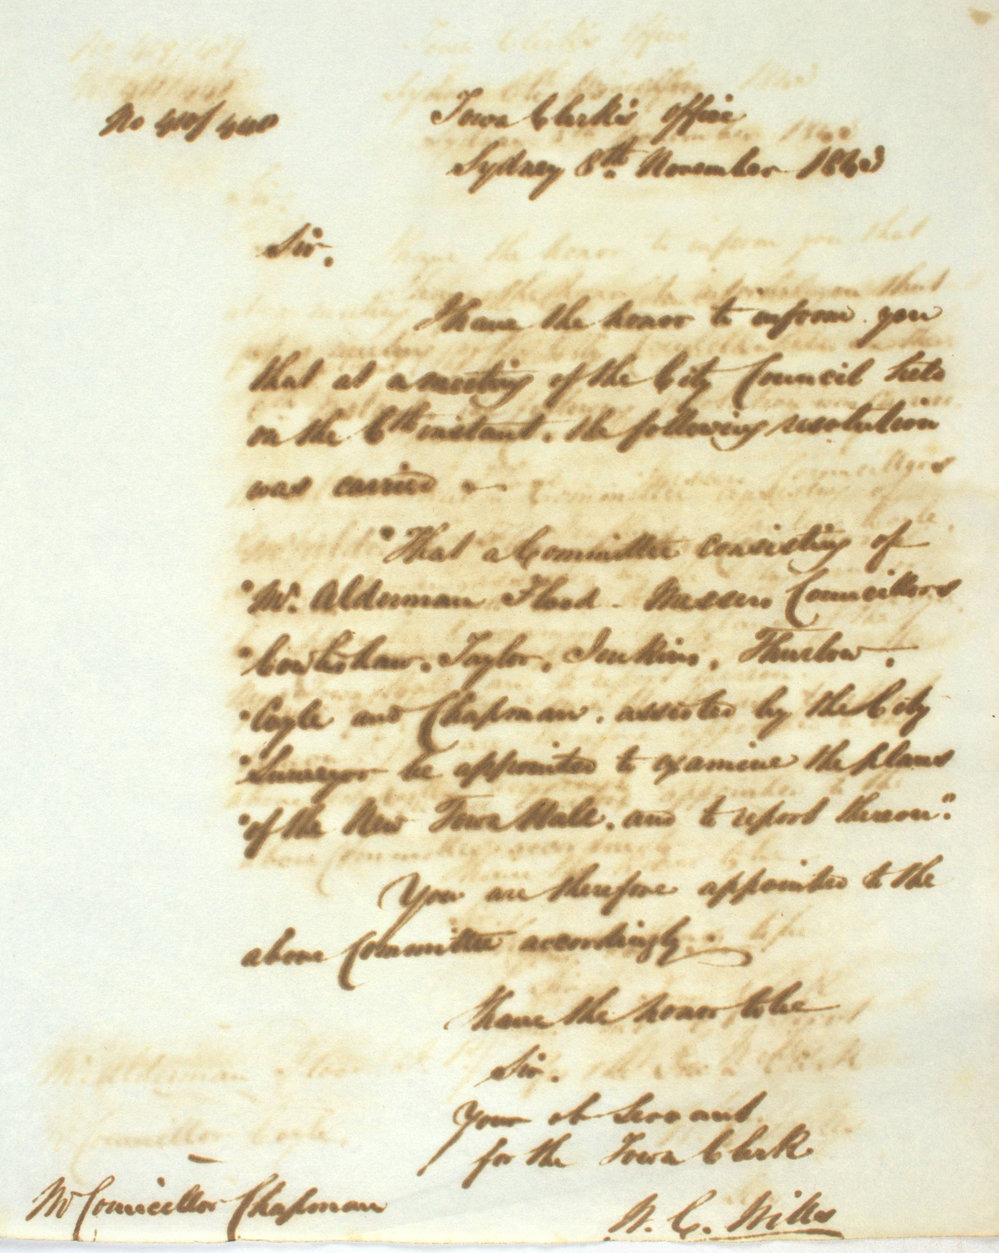 Town Clerk's Office
Sydney 8th November 1843
Sir,
I have the honor to inform you
that at a meeting of the City Council held
on the 6th instant, the following resolution
was carried
"That a Committee consisting of
"Mr. Alderman Flood - Messrs Councillors
"Cowlishaw, Taylor, Jenkins, Thurlow,
"Coyle and Chapman, assisted by the City
"Surveyor be appointed to examine the plans
"of the New Town Hall, and to report thereon."
You are therefore appointed to the
above Committee accordingly.
I have the honor to be
Sir.
Your ob Servant
for the Town Clerk
Mr Councillor Chapman
W. C. Wills